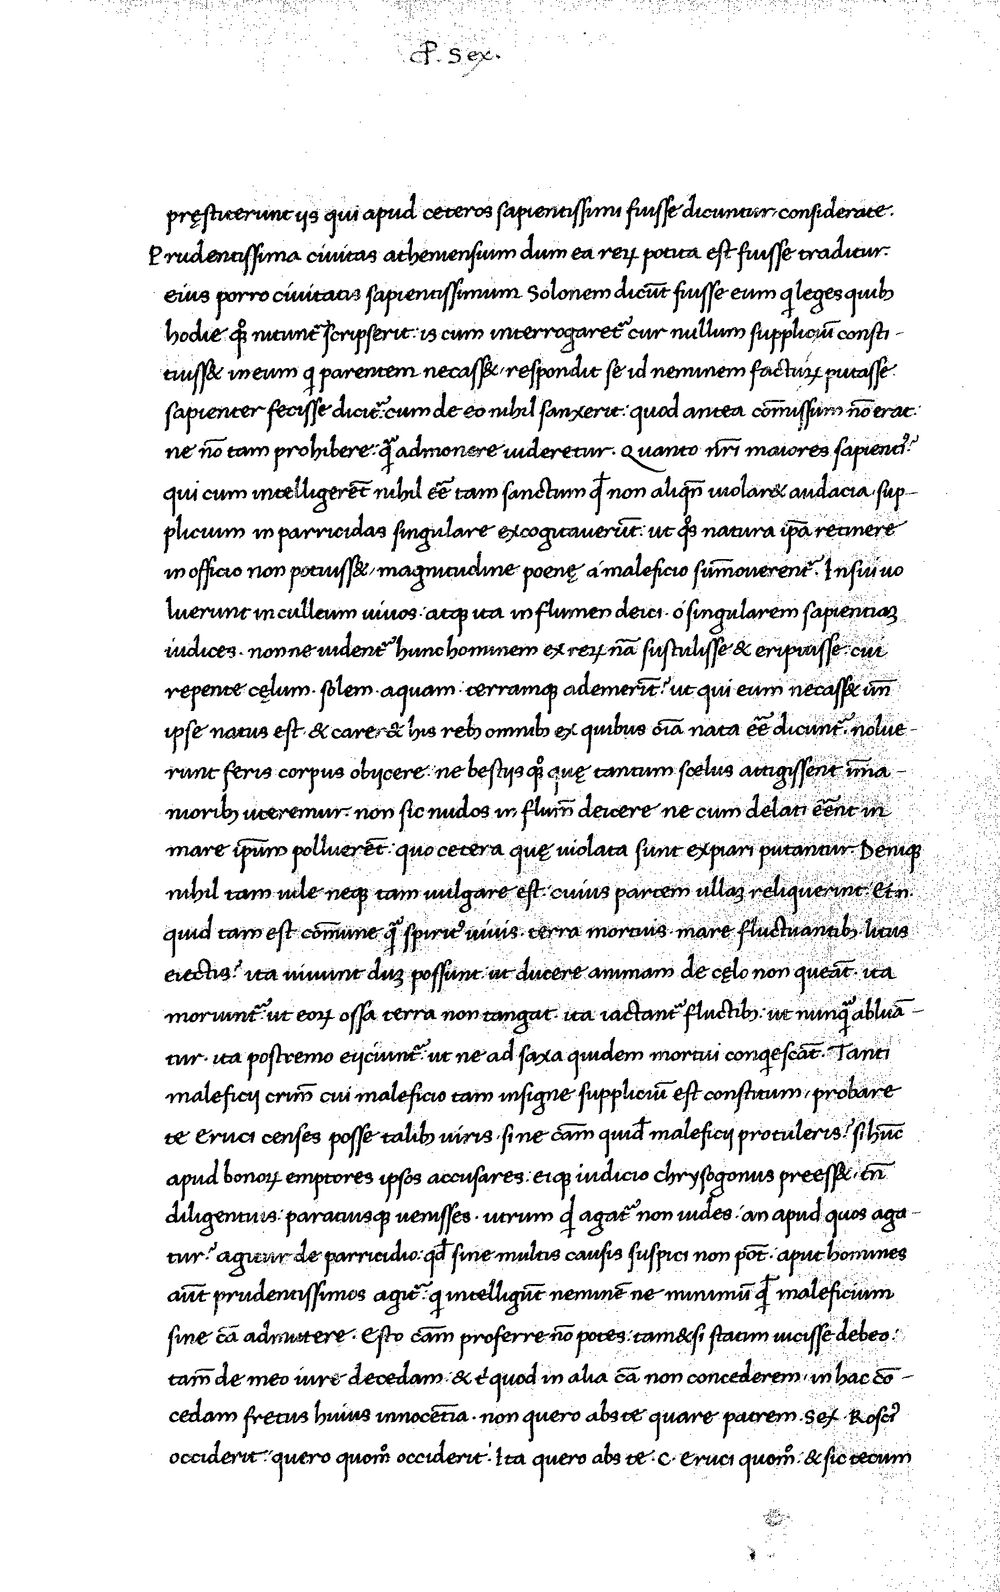 ꝓ. Sex.
pręstiterunt ijs qui apud ceteros sapientissimi fuisse dicuntur, considerate.
Prudentissima ciuitas atheniensium dum ea reꝝ potita est fuisse traditur.
eius porro ciuitatis sapientissimum Solonem dicūt fuisse eum qͥ leges quibꝫ
hodie qͦꝫ nitunt᷑ scripserit: is cum interrogaret᷑ cur nullum suppliciū consti-
tuiss& in eum qͥ parentem necass&, respondit se id neminem facturꝝ putasse.
sapienter fecisse dicit᷑: cum de eo nihil sanxerit: quod antea com̄issum nō erat:
ne nō tam prohibere: qͣ̄ admonere uideret᷑ur. Quanto nr̄i maiores sapientiꝰ?
qui cum intelligerēt nihil eē tam sanctum qd̄ non aliqn̄ uiolar& audacia, sup-
plicium in parricidas singulare excogitauerūt: ut qͦs natura ip̄a retinere
in officio non potuiss&, magnitudine poenę a maleficio sum̄ouerent᷑. Insui uo
luerunt in culleum uiuos: atqꝫ ita in flumen deici. o singularem sapientiaꝫ
iudices. nonne uident᷑ hunc hominem ex reꝝ nā sustulisse & eripuisse: cui
repente cęlum. solem. aquam: terramqꝫ ademerūt? ut qui eum necass& un̄
ipse natus est. & carer& his rebꝫ omnibꝫ ex quibus oīa nata eē dicunt᷑. nolue-
runt feris corpus obijcere: ne bestijs qͦꝫ quę tantum scelus attigissent īma-
nioribꝫ uteremur. non sic nudos in flum̄ deicere ne cum delati eēnt in
mare ip̄um polluerēt: quo cetera quę uiolata sunt expiari putantur. Deniqꝫ
nihil tam uile neqꝫ tam uulgare est: cuius partem ullaꝫ reliquerint. Eten̄.
quid tam est com̄une qͣ̄ spiritꝰ uiuis. terra mortuis. mare fluctuantibꝫ litus
eiectis? ita uiuunt duꝫ possunt: ut ducere animam de cęlo non queāt. ita
moriunt᷑: ut eoꝝ ossa terra non tangat. ita iactant᷑ fluctibꝫ: ut nunqͣ̄ abluā-
tur. ita postremo eijciunt᷑: ut ne ad saxa quidem mortui conqͥescāt. Tanti
maleficij crim̄ cui maleficio tam insigne suppliciū est constitutum, probare
te Eruci censes posse talibꝫ uiris. si ne cām quid̄ maleficij protuleris? si hūc
apud bonoꝝ emptores ipsos accusares: eiqꝫ iudicio Chrysogonus preess&, tn̄
diligentius: paratiusqꝫ uenisses. utrum qd̄ agat᷑ non uides: an apud quos aga-
tur? agitur de parricidio: qd̄ sine multis causis suspici non pōt: aput homines
aūt prudentissimos agit᷑: qͥ intelligūt neminē ne minimū qd̄ maleficium
sine cā admittere. Esto cām proferre nō potes: tam&si statim uicisse debeo:
tam̄ de meo iure decedam. & t̄ quod in alia cā non concederem, in hac cō-
cedam fretus huius innocētia. non quero abs te quare patrem. Sex. Rosciꝰ
occiderit: quero quom̊ occiderit. Ita quero abs te. C. Eruci quom̊. & sic tecum